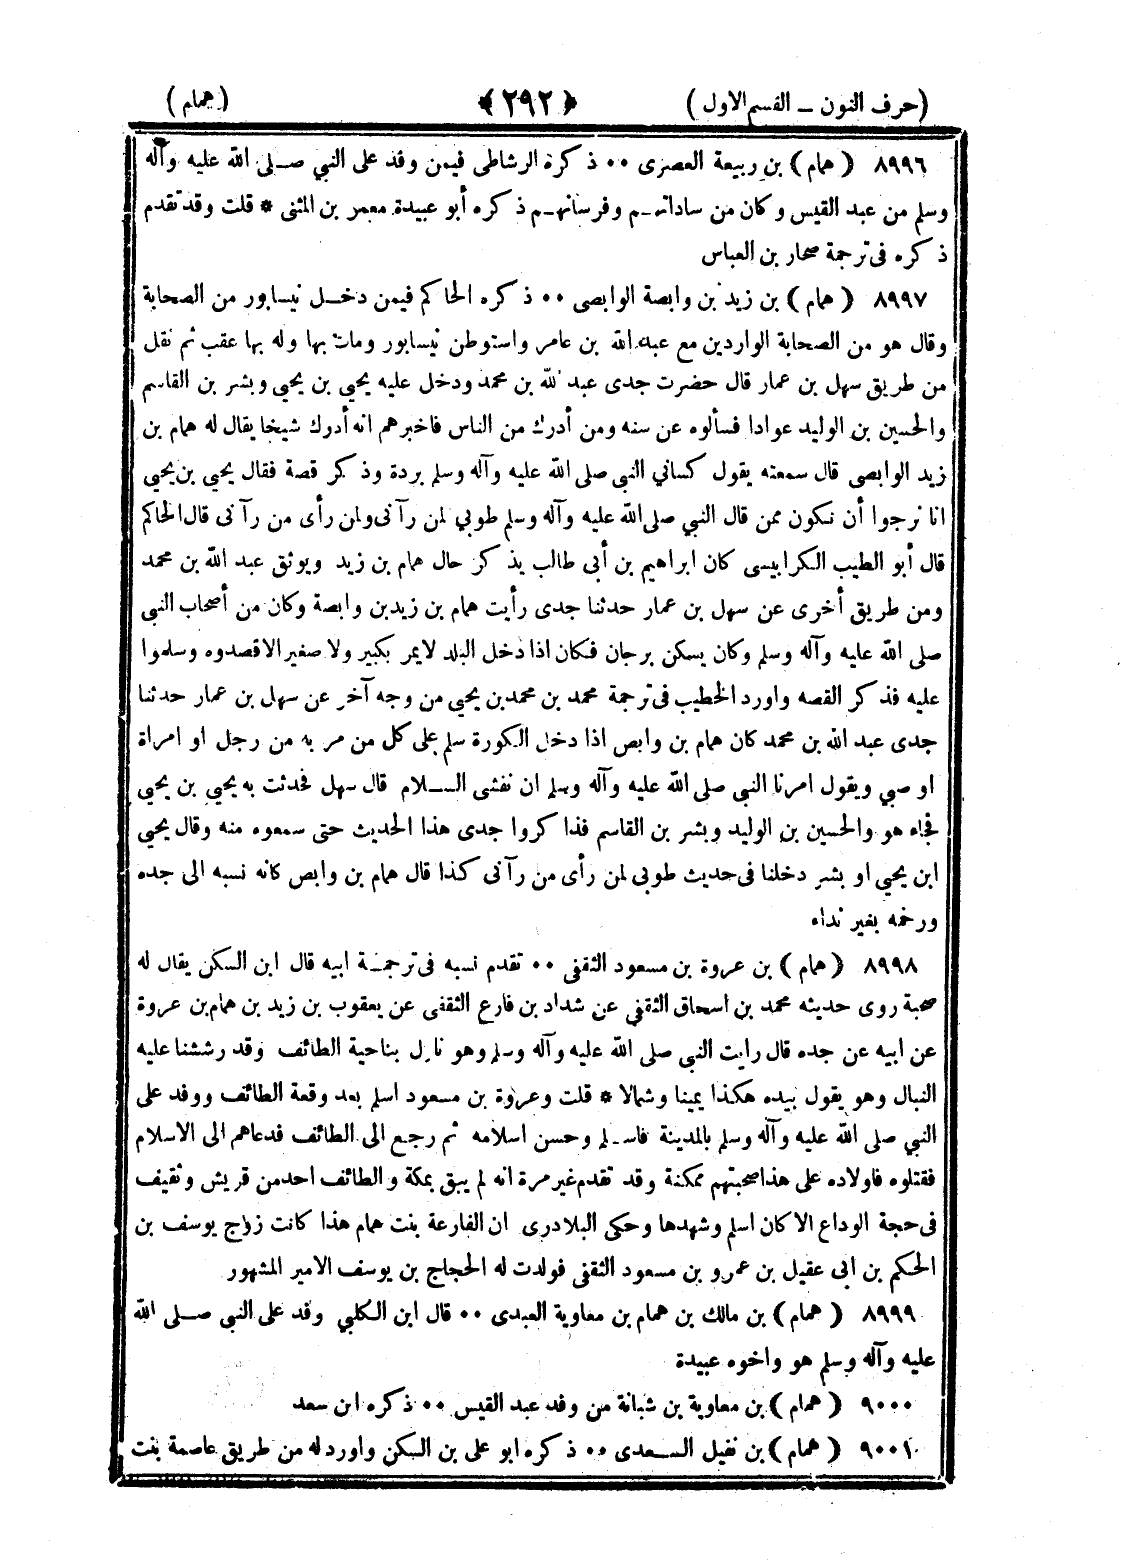 (حرف النون ــ القسم الاول) ﴿٢٩٢﴾ (همام)
٨٩٩٦ (همام) بن ربيعة العصرى ٠٠ ذكره الرشاطى فيمن وفد على النبي صلى الله عليه وآله
وسلم من عبد القيس وكان من ساداتهم وفرسانهم ذكره أبو عبيدة معمر بن المثنى * قلت وقد تقدم
ذكره فى ترجمة صحار بن العباس
٨٩٩٧ (همام) بن زيد بن وابصة الوابصى ٠٠ ذكره الحاكم فيمن دخل نيسابور من الصحابة
وقال هو من الصحابة الواردين مع عبد الله بن عامر واستوطن نيسابور ومات بها وله بها عقب ثم نقل
من طريق سهل بن عمار قال حضرت جدى عبد الله بن محمد ودخل عليه يحيي بن يحيي وبشر بن القاسم
والحسين بن الوليد عوادا فسألوه عن سنه ومن أدرك من الناس فاخبرهم انه أدرك شيخا يقال له همام بن
زيد الوابصى قال سمعته يقول كساني النبي صلى الله عليه وآله وسلم بردة وذكر قصة فقال يحيي بن يحيي
انا نرجوا أن نكون ممن قال النبي صلى الله عليه وآله وسلم طوبي لمن رآنى ولمن رأى من رآنى قال الحاكم
قال أبو الطيب الكرابيسى كان ابراهيم بن أبى طالب يذكر حال همام بن زيد ويوثق عبد الله بن محمد
ومن طريق أخرى عن سهل بن عمار حدثنا جدى رأيت همام بن زيد بن وابصة وكان من أصحاب النبي
صلى الله عليه وآله وسلم وكان يسكن برجان فكان اذا دخل البلد لايمر بكبير ولا صغير الا قصدوه وسلموا
عليه فذكر القصه واورد الخطيب فى ترجمة محمد بن محمد بن يحيي من وجه آخر عن سهل بن عمار حدثنا
جدى عبد الله بن محمد كان همام بن وابص اذا دخل الكورة سلم على كل من مر به من رجل او امراة
او صبي ويقول امرنا النبي صلى الله عليه وآله وسلم ان نفشى السلام قال سهل فحدثت به يحيي بن يحيي
فجاء هو والحسين بن الوليد وبشر بن القاسم فذاكروا جدى هذا الحديث حتى سمعوه منه وقال يحيي
ابن يحيي او بشر دخلنا فى حديث طوبى لمن رأى من رآنى كذا قال همام بن وابص كانه نسبه الى جده
ورخمه بغير نداء
٨٩٩٨ (همام) بن عروة بن مسعود الثقفى ٠٠ تقدم نسبه فى ترجمة ابيه قال ابن السكن يقال له
صحبة روى حديثه محمد بن اسحاق الثقفي عن شداد بن فارع الثقفى عن يعقوب بن زيد بن همام بن عروة
عن ابيه عن جده قال رايت النبي صلى الله عليه وآله وسلم وهو نازل بناحية الطائف وقد رششنا عليه
النبال وهو يقول بيده هكذا يمينا وشمالا * قلت وعروة بن مسعود اسلم بعد وقعة الطائف ووفد على
النبي صلى الله عليه وآله وسلم بالمدينة فاسلم وحسن اسلامه ثم رجع الى الطائف فدعاهم الى الاسلام
فقتلوه فاولاده على هذا صحبتهم ممكنة وقد تقدم غير مرة انه لم يبق بمكة والطائف احد من قريش وثقيف
فى حجة الوداع الا كان اسلم وشهدها وحكى البلادرى ان الفارعة بنت همام هذا كانت زواج يوسف بن
الحكم بن ابى عقيل بن عمرو بن مسعود الثقفى فولدت له الحجاج بن يوسف الامير المشهور
٨٩٩٩ (همام) بن مالك بن همام بن معاوية العبدى ٠٠ قال ابن الكلبي وفد على النبي صلى الله
عليه وآله وسلم هو واخوه عبيدة
٩٠٠٠ (همام) بن معاوية بن شبانة من وفد عبد القيس ٠٠ ذكره ابن سعد
٩٠٠١ (همام) بن نفيل السعدى ٠٠ ذكره ابو على بن السكن واورد له من طريق عاصمة بنت